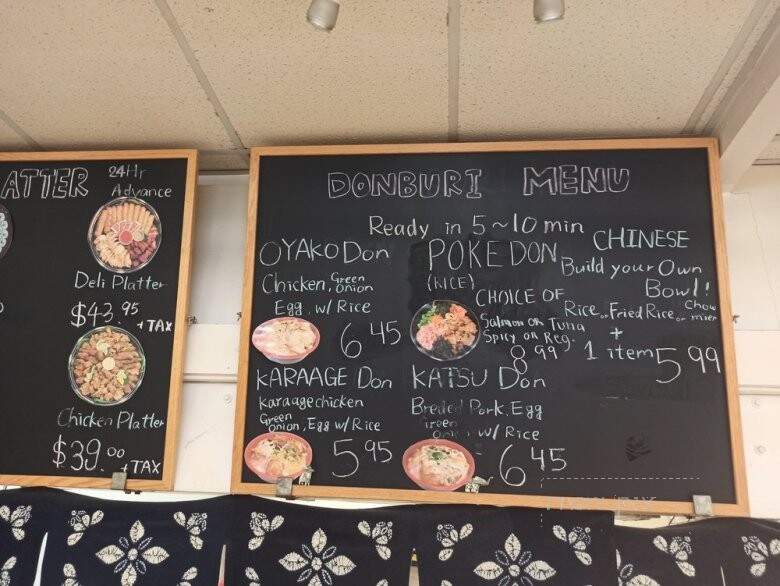 ATTER
24Hr
Advance
Deli Platter
$43.95
+TAX
Chicken Platter
$39.00
+TAX
DONBURI MENU
Ready in 5~10 min
OYAKO Don
Chicken, Green
Onion
Egg, w/ Rice
6 45
POKE DON
(RICE)
CHOICE OF
Salmon or Tuna
Spicy or Reg.
8 99
CHINESE
Build your Own
Bowl!
Rice or Fried Rice or Chow
mien
+
1 item 5 99
KARAAGE Don
Karaage chicken
Green
Onion, Egg w/ Rice
5 95
KATSU Don
Breded Pork, Egg
Green
w/ Rice
6 45